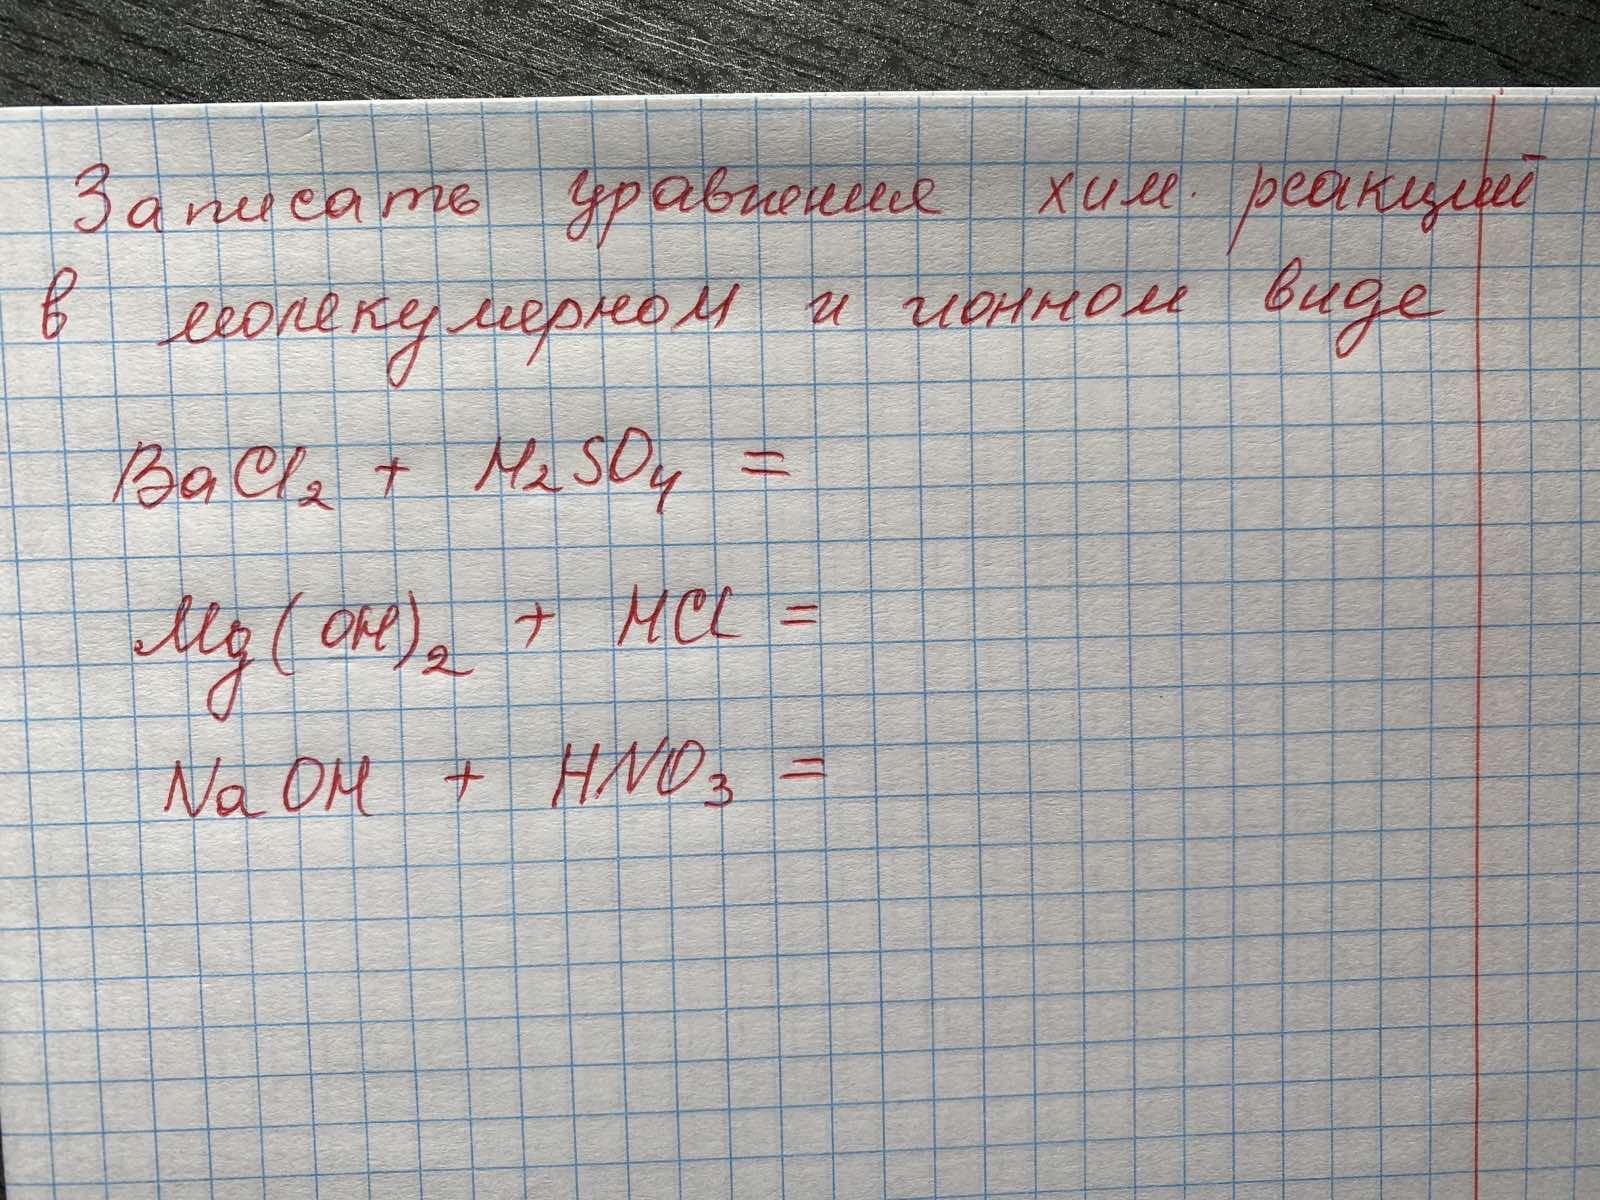 Записать уравнения хим. реакций
в молекулярном и ионном виде
BaCl₂ + H₂SO₄ =
Mg(OH)₂ + HCl =
NaOH + HNO₃ =